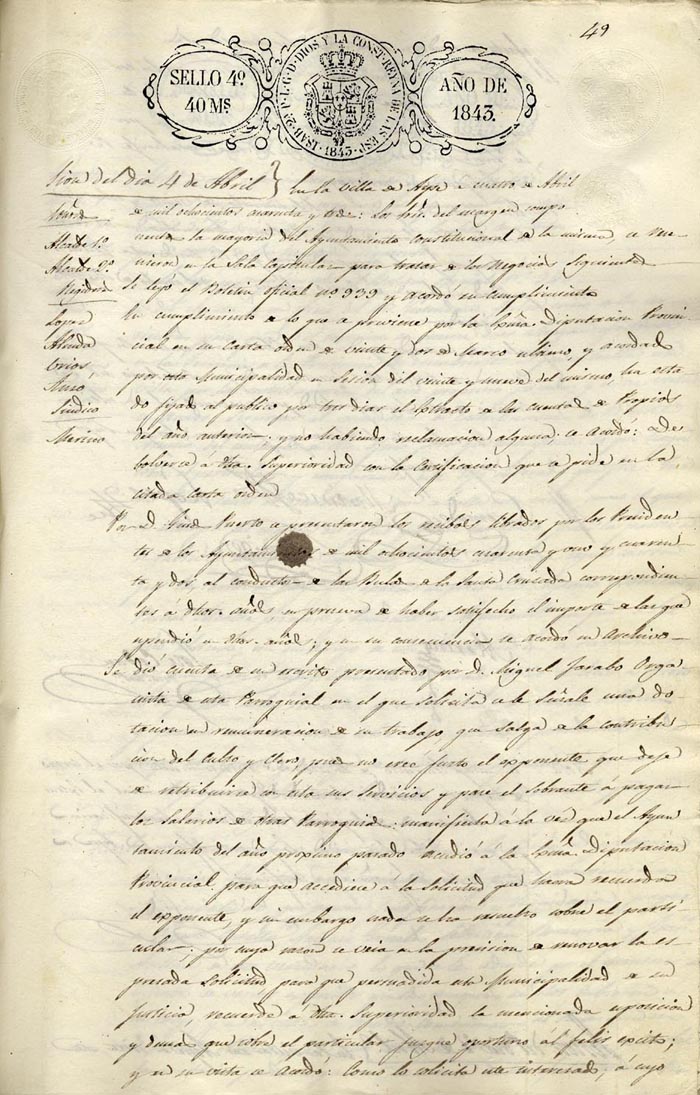 49
SELLO 4º
40 Ms
ISAB. 2ª P. L. G. D. DIOS Y LA CONST. REYNA DE LAS ESP. 1843.
AÑO DE
1843.
sion del dia 4 de Abril
En la villa de a cuatro de Abril
Señores
de mil ochocientos cuarenta y tres: Los Sres. del margen compo
Alcalde 1º
niendo la mayoria del Ayuntamiento constitucional de la misma se reu
Alcalde 2º
nieron en la Sala Capitular para tratar de los Negocios siguientes
Regidores
Se leyó el Boletin oficial nº 939 y acordó su cumplimiento
Lopez
En cumplimiento a lo que se previene por la Exma. Diputacion Provin
Almida
cial en su Carta orden de veinte y dos de Marzo ultimo, y acordado
por esta Municipalidad en Sesion del veinte y nueve del mismo, ha esta
do fijado al publico por tres dias el Estracto de las cuentas de Propios
Sindico
del año anterior; y no habiendo reclamacion alguna se acordó: De
Merino
bolverse á dha. Superioridad con la Certificacion que se pide en la
citada Carta orden
Por D. Puerto se presentaron los recibos librados por los Presiden
tes de los Ayuntamientos de mil ochocientos cuarenta y uno y cuaren
ta y dos al conductor de las Bulas de la Santa Cruzada correspondien
tes á dhos. años, en prueva de haber satisfecho el importe de las que
espendió en dhos. años; y en su consecuencia se acordó su Archivo
Se dio cuenta de un escrito presentado por D. Miguel Jarabo Orga
nista de esta Parroquial en el que solicita se le Señale una do
tacion en remuneracion de su trabajo que salga de la contribu
cion del Culto y Clero, pues no cree justo el exponente que deje
de retribuirse con esta sus Servicios y pase el sobrante á pagar
los Salarios de otras Parroquias: manifiesta á la vez que el Ayun
tamiento del año proximo pasado acudió á la Exma. Diputacion
Provincial para que accediese á la solicitud que ahora recuerda
el exponente, y sin embargo nada se ha resuelto sobre el parti
cular: por cuya razon se veia en la precision de renovar la es
presada Solicitud para que persuadida esta Municipalidad de su
Justicia, recuerde á dha. Superioridad la mencionada esposicion
y demas que sobre el particular juzgue oportuno al feliz exito;
y en su vista se Acordó: Como lo solicita este interesado; á cuyo